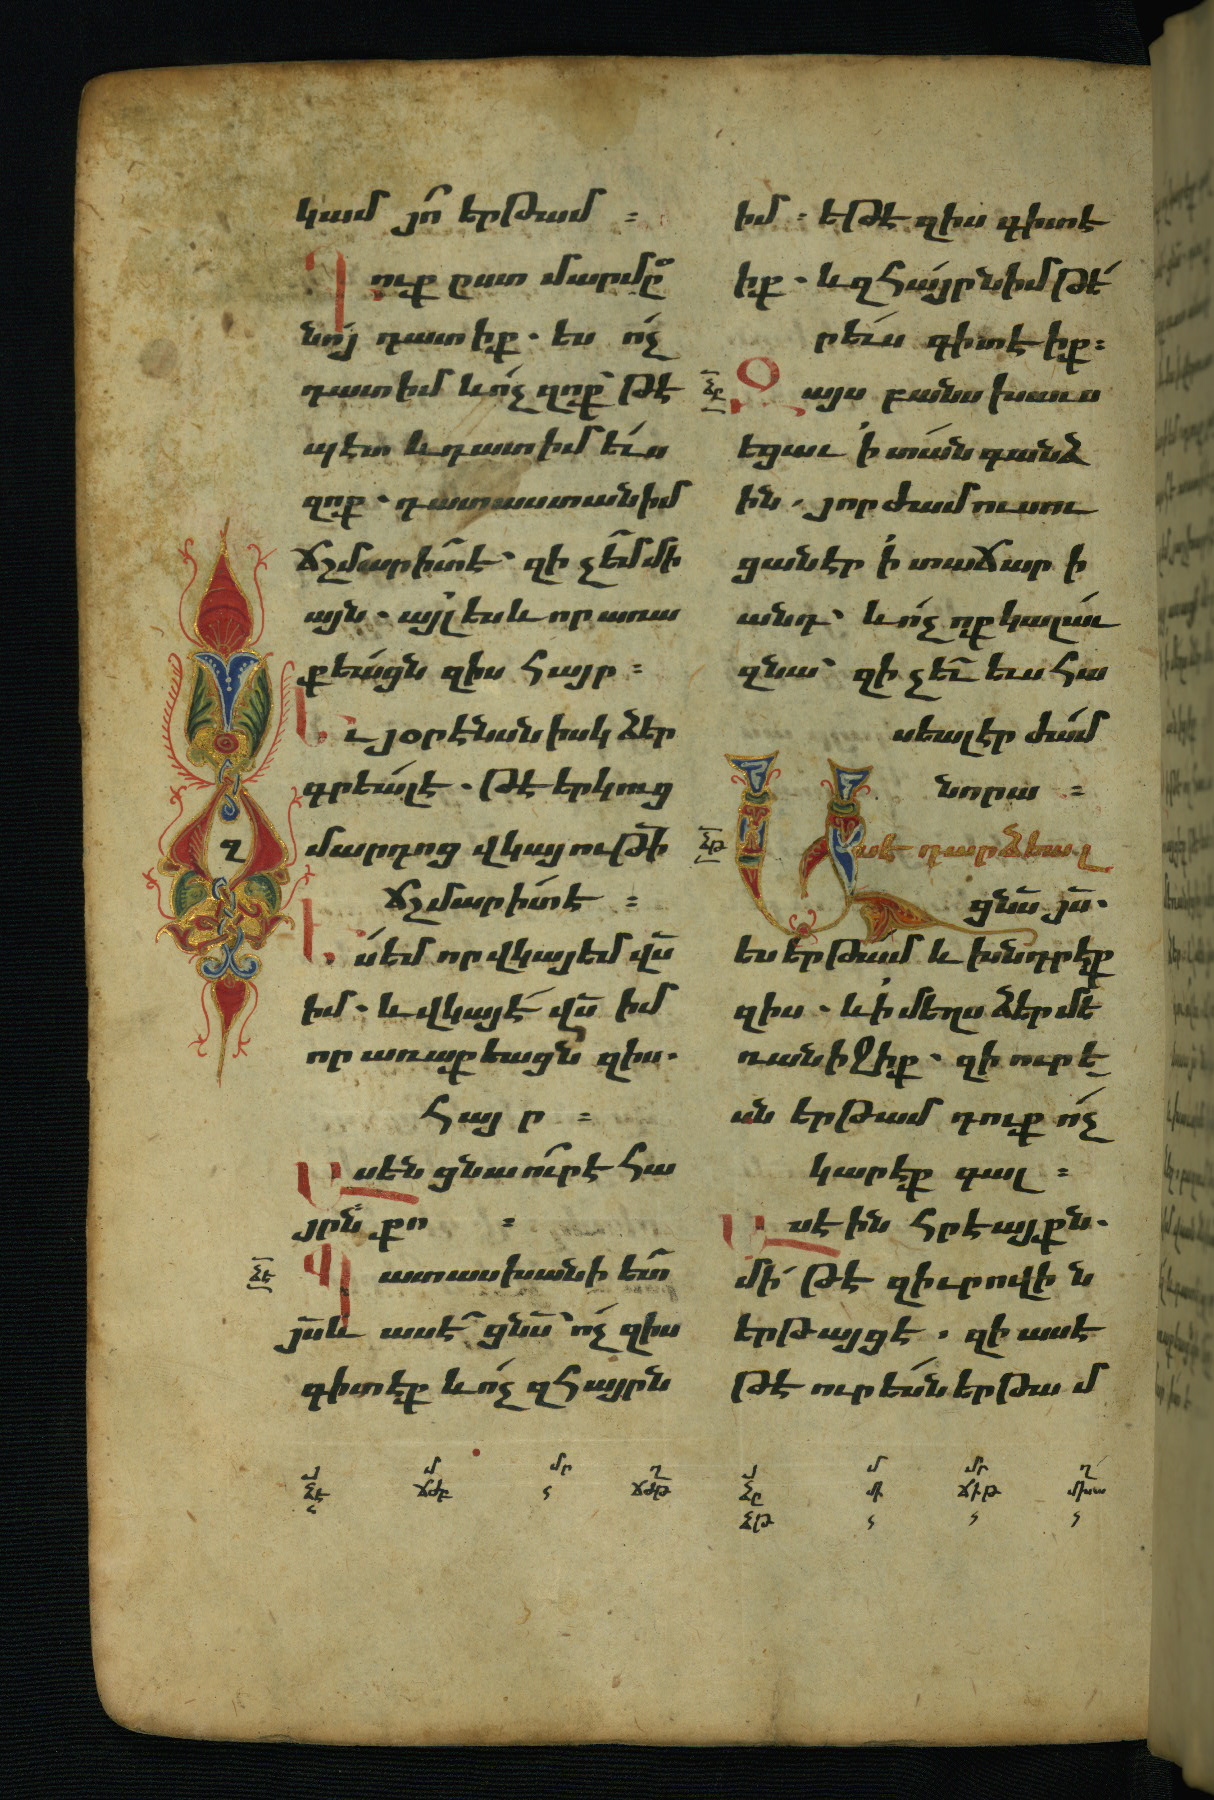 կամ յո՞ երթամ ։
Դուք ըստ մարմը
նոյ դատիք . ես ո՛չ
դատիմ և ո՛չ զոք՝ թէ
պէտ և դատիմ ե՛ւս
զոք . դատաստան իմ
ճշմարիտ է՝ զի չեմ մի
այն . այլ ես և որ առա
քեացն զիս հայր ։
Եւ յօրէնսն իսկ ձեր
գրեալ է . թէ երկուց
մարդոց վկայութի
ճշմարիտ է ։
Ես եմ որ վկայեմ վս
իմ . և վկայէ վս իմ
որ առաքեացն զիս .
հայր ։
Ասեն ցնա ո՛ւր է հա
յրն քո ։
ՃԷ
Պատասխանի ետ
յս և ասէ ցնս՝ ո՛չ զիս
գիտէք և ո՛չ զհայրն
զ
իմ ։ եթէ զիս գիտէ
իք . և զհայրն իմ թէ
րևս գիտէիք ։
ՃԸ
Զայս բանս խաւս
եցաւ ՛ի տան գանձ
ին . յորժամ ուսու
ցանէր ՛ի տաճար ի
անդ՝ և ո՛չ ոք կալաւ
զնա՝ զի չև ևս հա
սեալ էր ժամ
նորա ։
ՃԹ
Ասէ դարձեալ
ցնս յս .
ես երթամ և խնդրէք
զիս . և ՛ի մեղս ձեր մե
ռանիջիք . զի ուր ե
ս երթամ դուք ո՛չ
կարէք գալ ։
Ասէին հրէայքն .
մի՛ թէ զիւրովին
երթայցէ . զի ասէ
թէ ուր ես երթամ
յ մ մր ղ
ՃԷ ՃԺԲ ՃԺԹ
յ մ մր ղ
ՃԸ ՃԻԹ
ՃԹ